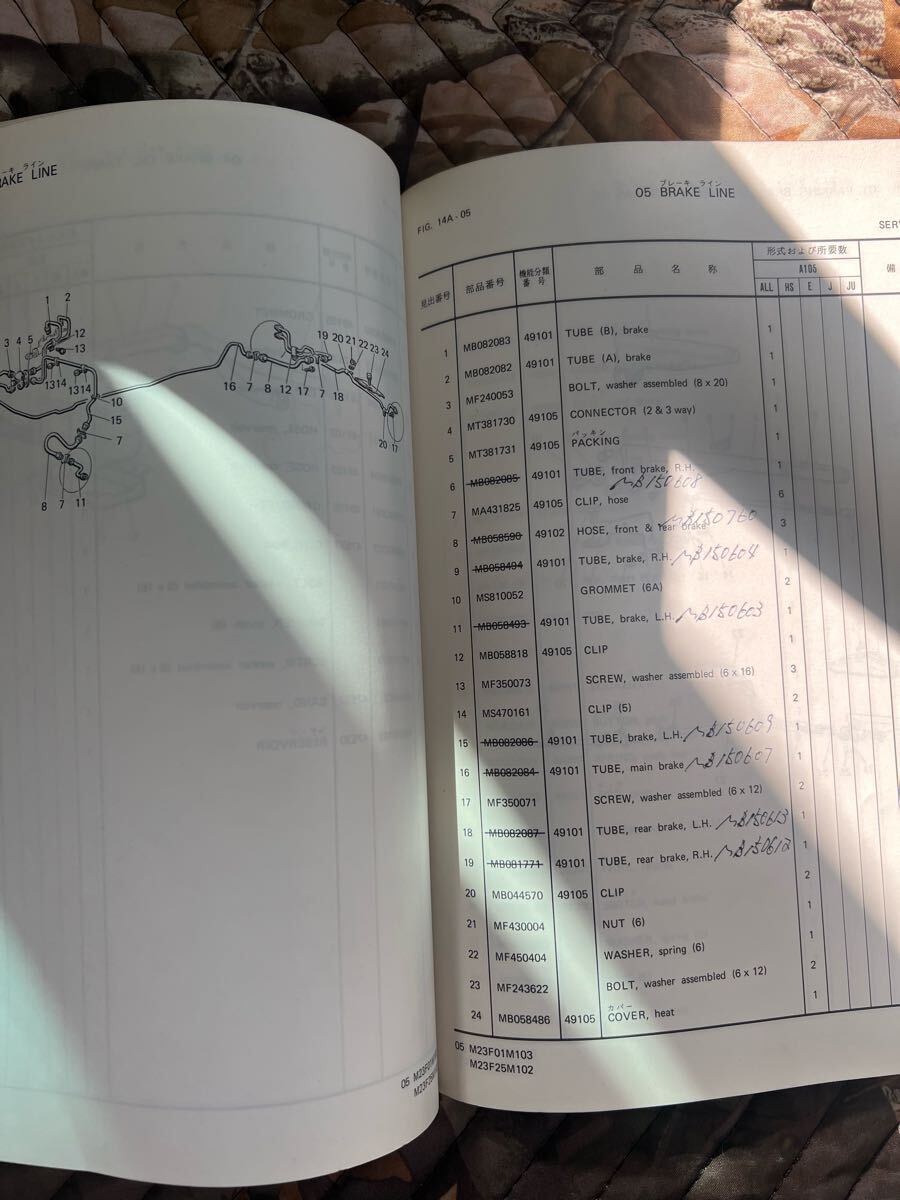 ーキ ライン
AKE LINE
1 2
3 4 5 12
13
1314 1314
10
15
7
8 7 11
16 7 8 12 17 7 18
19 20 21 22 23 24
20 17
05 M23F01M
M23F25M
FIG. 14A - 05
ブレーキ ライン
05 BRAKE LINE
SERV
見出番号 部品番号 機能分類番号 部品名称 形式および所要数 備
A105
ALL HS E J JU
1 MB082083 49101 TUBE (B), brake 1
2 MB082082 49101 TUBE (A), brake 1
3 MF240053 BOLT, washer assembled (8 x 20) 1
4 MT381730 49105 CONNECTOR (2 & 3 way) 1
パッキン
5 MT381731 49105 PACKING 1
6 MB082085 49101 TUBE, front brake, R.H. 1
MB150608
7 MA431825 49105 CLIP, hose 6
8 MB058590 49102 HOSE, front & rear brake MB150760 3
9 MB058494 49101 TUBE, brake, R.H. MB150604 1
10 MS810052 GROMMET (6A) 2
11 MB058493 49101 TUBE, brake, L.H. MB150603 1
12 MB058818 49105 CLIP 1
13 MF350073 SCREW, washer assembled (6 x 16) 3
14 MS470161 CLIP (5) 2
15 MB082086 49101 TUBE, brake, L.H. MB150609 1
16 MB082084 49101 TUBE, main brake MB150607 1
17 MF350071 SCREW, washer assembled (6 x 12) 2
18 MB082087 49101 TUBE, rear brake, L.H. MB150613 1
19 MB081771 49101 TUBE, rear brake, R.H. MB150612 1
20 MB044570 49105 CLIP 2
21 MF430004 NUT (6) 1
22 MF450404 WASHER, spring (6) 1
23 MF243622 BOLT, washer assembled (6 x 12) 2
カバー
24 MB058486 49105 COVER, heat 1
05 M23F01M103
M23F25M102